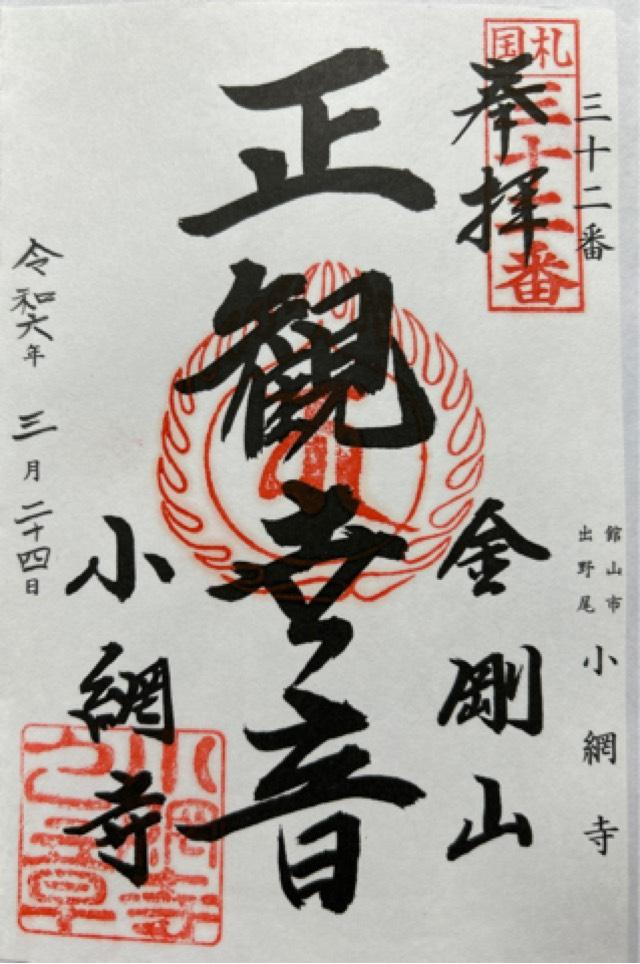 三十二番
館山市
出野尾
小網寺
国札
三十二番
奉拝
金剛山
正観世音
小網寺
令和六年 三月二十四日
小網寺